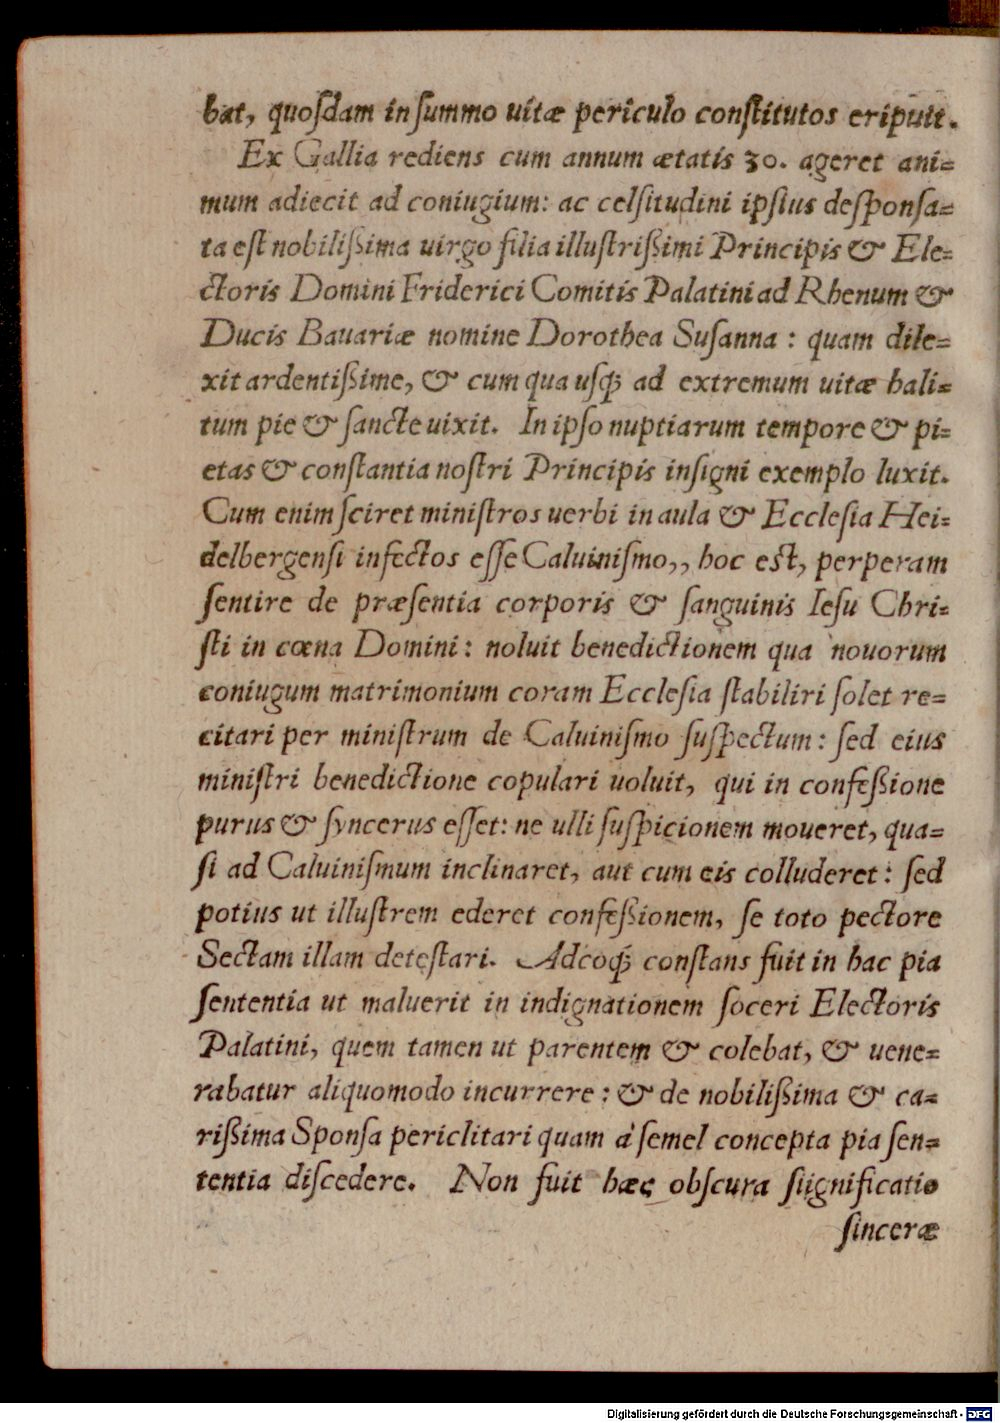 bat, quoſdam in ſummo uitæ periculo conſtitutos eripuit.
Ex Gallia rediens cum annum ætatis 30. ageret ani=
mum adiecit ad coniugium: ac celſitudini ipſius deſponſa=
ta eſt nobilißima uirgo filia illuſtrißimi Principis & Ele=
ctoris Domini Friderici Comitis Palatini ad Rhenum &
Ducis Bauariæ nomine Dorothea Suſanna : quam dile=
xit ardentißime, & cum qua uſq; ad extremum uitæ hali=
tum pie & ſancte uixit. In ipſo nuptiarum tempore & pi=
etas & conſtantia noſtri Principis inſigni exemplo luxit.
Cum enim ſciret miniſtros uerbi in aula & Eccleſia Hei=
delbergenſi infectos eſſe Caluiniſmo,, hoc eſt, perperam
ſentire de præſentia corporis & ſanguinis Ieſu Chri=
ſti in cœna Domini: noluit benedictionem qua nouorum
coniugum matrimonium coram Eccleſia ſtabiliri ſolet re=
citari per miniſtrum de Caluiniſmo ſuſpectum: ſed eius
miniſtri benedictione copulari uoluit, qui in confeßione
purus & ſyncerus eſſet: ne ulli ſuſpicionem moueret, qua=
ſi ad Caluiniſmum inclinaret, aut cum eis colluderet: ſed
potius ut illuſtrem ederet confeßionem, ſe toto pectore
Sectam illam deteſtari. Adeoq; conſtans fuit in hac pia
ſententia ut maluerit in indignationem ſoceri Electoris
Palatini, quem tamen ut parentem & colebat, & uene=
rabatur aliquomodo incurrere: & de nobilißima & ca=
rißima Sponſa periclitari quam à ſemel concepta pia ſen=
tentia diſcedere. Non fuit hæc obſcura ſiignificatio
ſinceræ
Digitalisierung gefördert durch die Deutsche Forschungsgemeinschaft - DFG